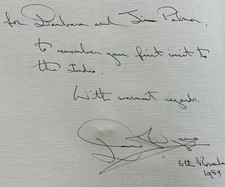 for Barbara and Jim
to remember your first visit to
the studio.
With warmest regards.
6th
1989